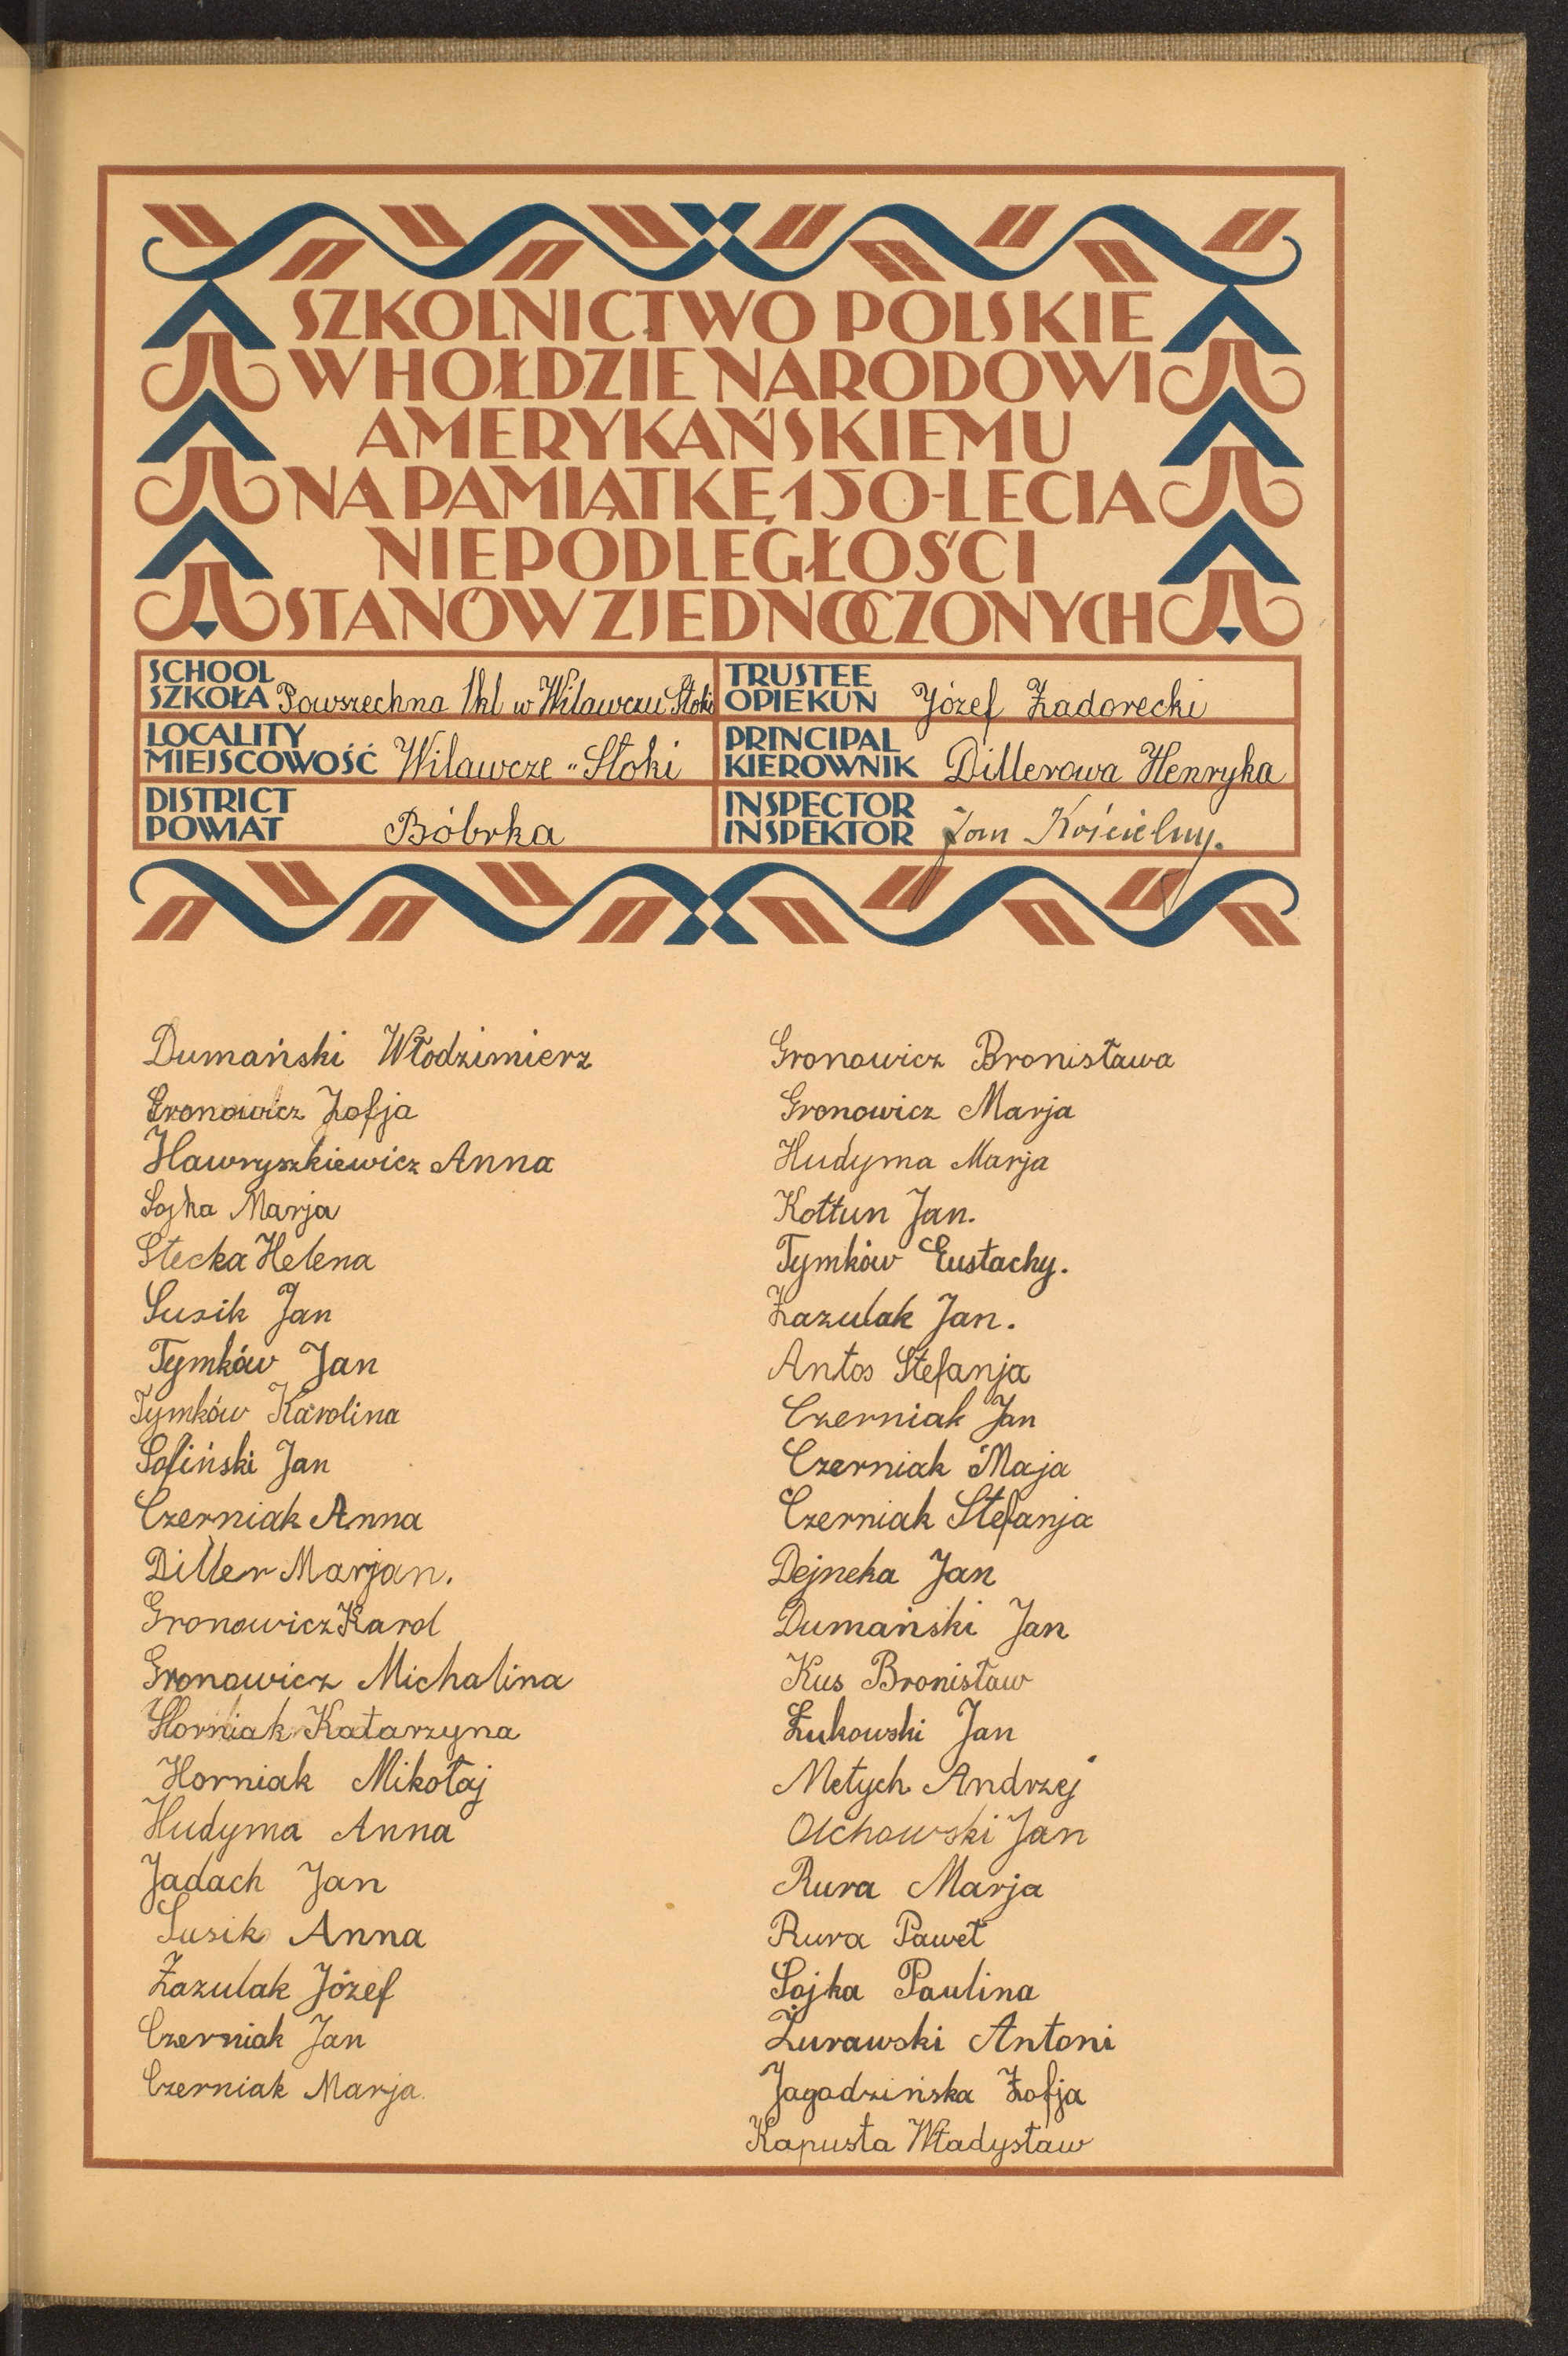 SZKOLNICTWO POLSKIE
W HOŁDZIE NARODOWI
AMERYKAŃSKIEMU
NA PAMIĄTKĘ 150-LECIA
NIEPODLEGŁOŚCI
STANÓW ZJEDNOCZONYCH
SCHOOL
SZKOŁA Powszechna 1kl w Wilawczu Stoki
LOCALITY
MIEJSCOWOŚĆ Wilawcze "Stoki
DISTRICT
POWIAT Bóbrka
TRUSTEE
OPIEKUN Józef Zadorecki
PRINCIPAL
KIEROWNIK Dillerowa Henryka
INSPECTOR
INSPEKTOR Jan Kościelny.
Dumański Włodzimierz
Gronowicz Zofja
Hawryszkiewicz Anna
Sojka Marja
Stecka Helena
Susik Jan
Tymków Jan
Tymków Karolina
Soliński Jan
Czerniak Anna
Diller Marjan.
Gronowicz Karol
Gronowicz Michalina
Horniak Katarzyna
Horniak Mikołaj
Hudyma Anna
Jadach Jan
Susik Anna
Zazulak Józef
Czerniak Jan
Czerniak Marja
Gronowicz Bronisława
Gronowicz Marja
Hudyma Marja
Kołtun Jan.
Tymków Eustachy.
Zazulak Jan.
Antos Stefanja
Czerniak Jan
Czerniak Maja
Czerniak Stefanja
Dejneka Jan
Dumański Jan
Kus Bronisław
Łukowski Jan
Metych Andrzej
Olchowski Jan
Rura Marja
Rura Paweł
Sojka Paulina
Żurawski Antoni
Jagodzińska Zofja
Kapusta Władysław